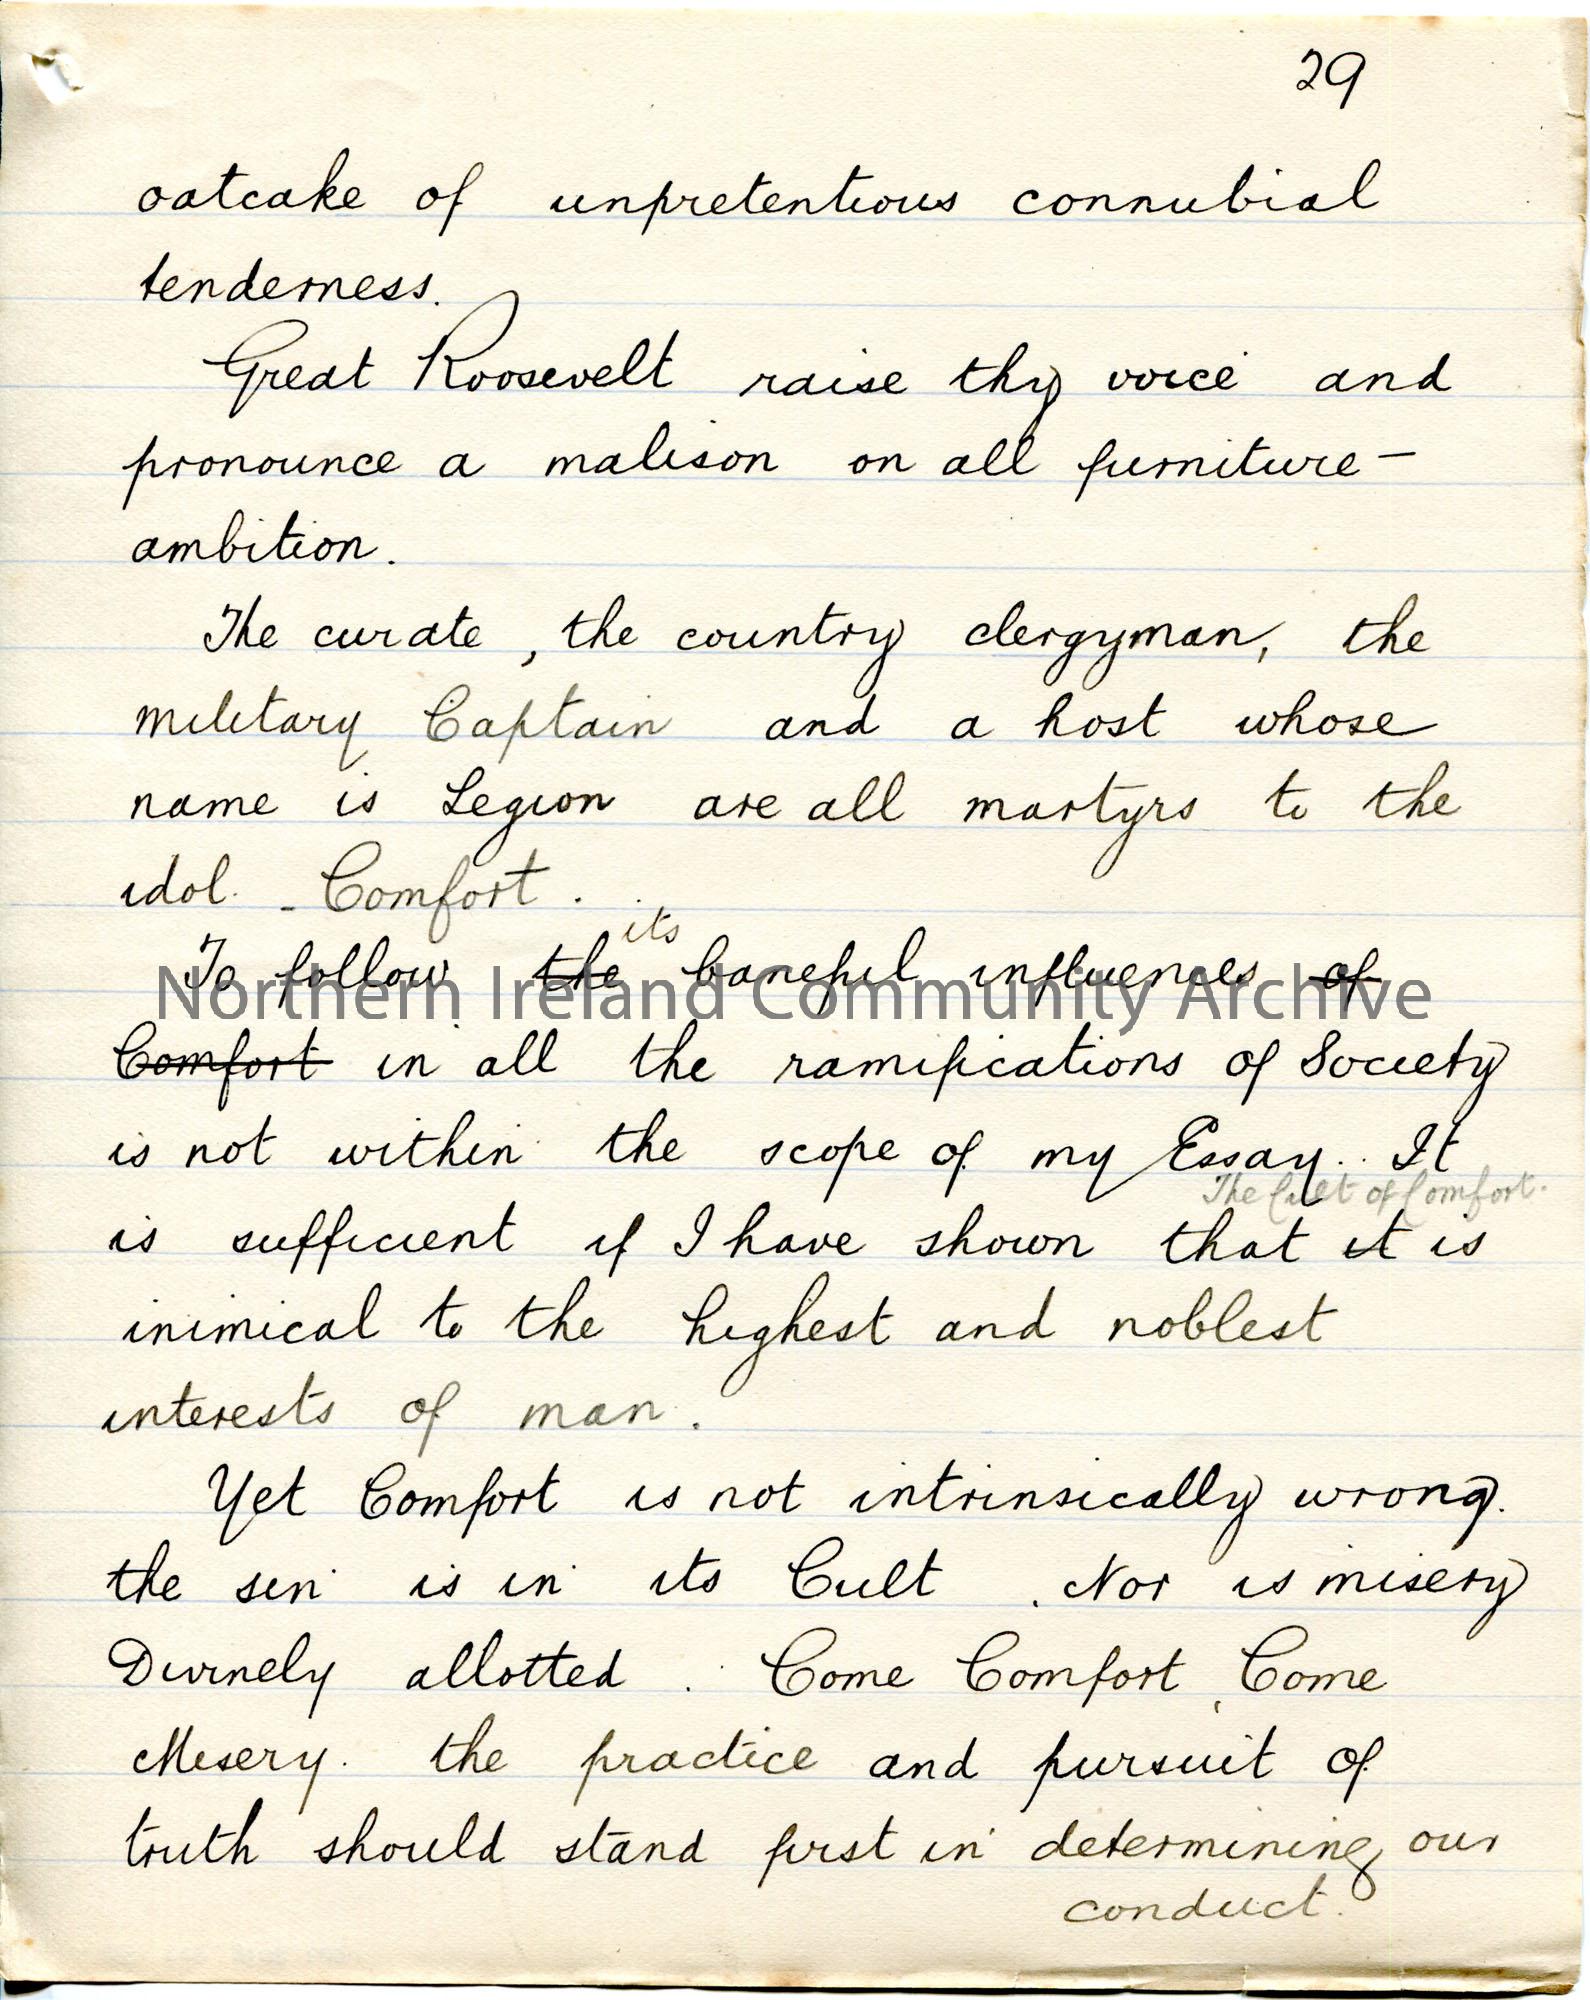 29
oatcake of unpretentious connubial
tenderness.
Great Roosevelt raise thy voice and
pronounce a malison on all furniture-
ambition.
The curate, the country clergyman, the
military Captain and a host whose
name is Legion are all martyrs to the
idol - Comfort.
its
To follow the baneful influences of
Northern Ireland Community Archive
Comfort in all the ramifications of Society
is not within the scope of my Essay. It
The Cult of Comfort.
is sufficient if I have shown that it is
inimical to the highest and noblest
interests of man.
Yet Comfort is not intrinsically wrong.
the sin is in its Cult. Nor is misery
Divinely allotted. Come Comfort, Come
Misery. the practice and pursuit of
truth should stand first in determining our
conduct.